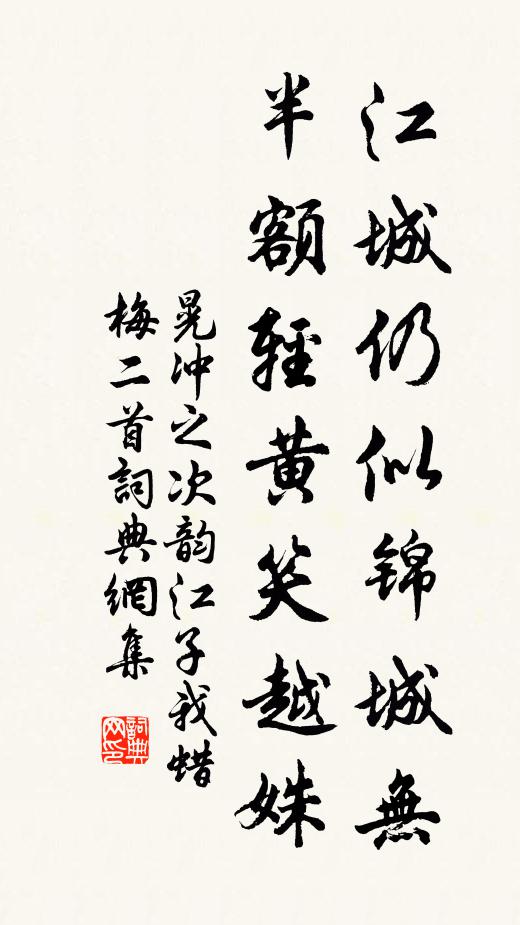 江城仍似锦城無
半額輕黄笑越姝
晁冲之次韵江子我蜡
梅二首詞典網集
詞典
网印